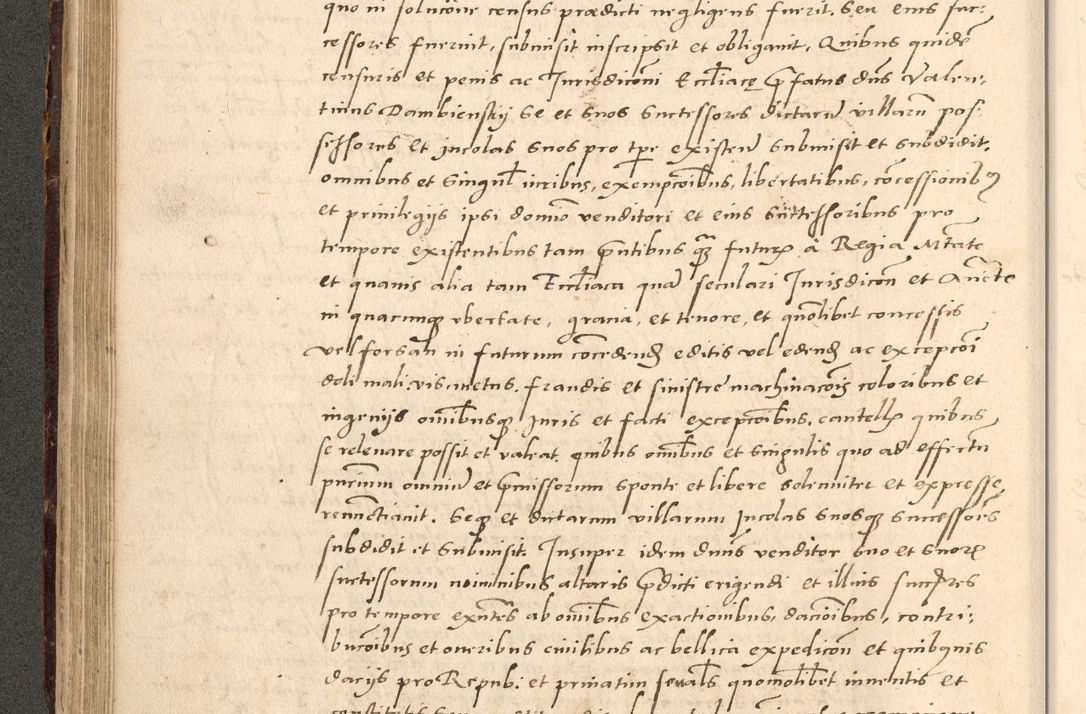 quo in solucione census prædicti negligens fuerit. Seu eius suc:
cessores fuerint, submisit inscripsit et obligauit, Quibus quidē
censuris et penis ac Jurisdicōni Eccl̄iacę p̄fatus dn̄s Valen,
tinus Dambienskij se et suos successores dictarū villarū pos,
sessores et Jncolas suos pro tp̄e existen̄ submisit et subdidit.
omnibus et singul̄ iuribus, exempcōibus, libertatibus, cōcessionib9
et priuilegijs ipsi domīo venditori et eius successoribus pro
tempore existentibus tam p̄ntibus qꝫ futur̄ à Regia Mtāte
et quauis alia tam Eccl̄iaca quā seculari Jurisdicōn et Auc̄te
in quacunqꝫ vbertate, gracia, et tenore, et quōlibet concessis
vel forsan in futurum cōcedend̄ editis vel edend̄ ac excepcōi
doli mali, vis, metus, fraudis et sinistre machinacōis coloribus et
ingenijs om̄ibusqꝫ Juris et facti excepcōibus, cautell̄ quibus
se releuare possit et valeat. quibus om̄ibus et singulis quo ad effectū
omniū et p̄missorum sponte et libere solenniter et expresse
renūctiauit. Seqꝫ et dictarum villarum Jncolas suosqꝫ successores
subdidit et submisit. Insuper idem dn̄us venditor suo et suor̄
successorum nominibus altaris p̄dicti erigendi et illius succ̄res
pro tempore exn̄tes ab om̄ibus exactionibus, daciōibus, contri:
bucōibus et oneribus ciuilibus ac bellica expedicōn et quibusuis
dacijs pro Repub: et priuatim quomōlibet inuentis et